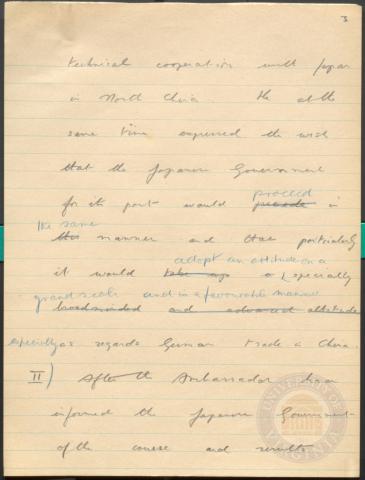 3
technical cooperation with Japan
in North China. He at the
same time expressed the wish
that the Japanese Government
proceed
for its part would precede in
the same
this manner and that particularly
adopt an attitude on a
it would take up a specially
grand scale and in a favourable manner
broadminded and advanced attitude
especially as regards German trade in China.
II) After the Ambassador has
informed the Japanese Government
of the course and results
UNIVERSITY OF VIRGINIA